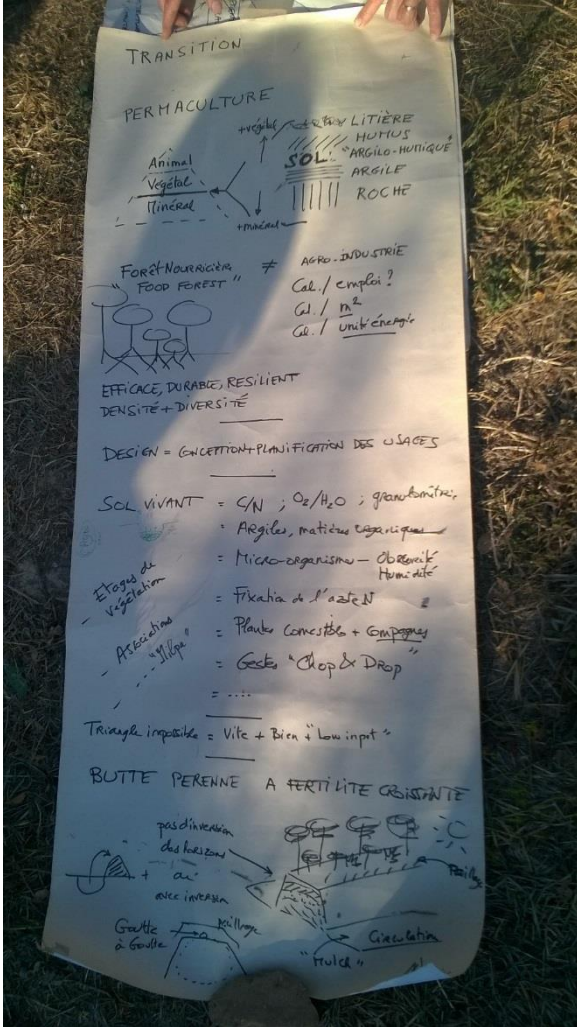 TRANSITION
PERMACULTURE
+végétal
LITIÈRE
HUMUS
Animal
SOL
"ARGILO-HUMIQUE"
Végétal
ARGILE
Minéral
ROCHE
+minéral
FORÊT NOURRICIÈRE
"FOOD FOREST"
≠
AGRO-INDUSTRIE
Cal. / emploi ?
Cal. / m²
Cal. / unité énergie
EFFICACE, DURABLE, RESILIENT
DENSITÉ + DIVERSITÉ
DESIGN = CONCEPTION + PLANIFICATION DES USAGES
SOL VIVANT = C/N ; O2/H2O ; granulométrie
= Argiles, matières organiques
= Micro-organisme - Obscurité
Humidité
- Etages de
végétation
= Fixation de l'azote N
- Associations
= Plantes comestibles + compagnes
= Gestes "Chop & Drop"
= ....
Triangle impossible = Vite + Bien + "Low input"
BUTTE PERENNE A FERTILITE CROISSANTE
pas d'inversion
des horizons
+ ou
avec inversion
Paillage
Goutte
à Goutte
Paillage
Circulation
"Mulch"